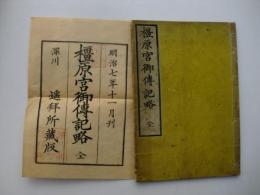 明治七年十一月刊
橿原宮御傳記略 全
深川 遥拜所藏版
橿原宮御傳記略 全